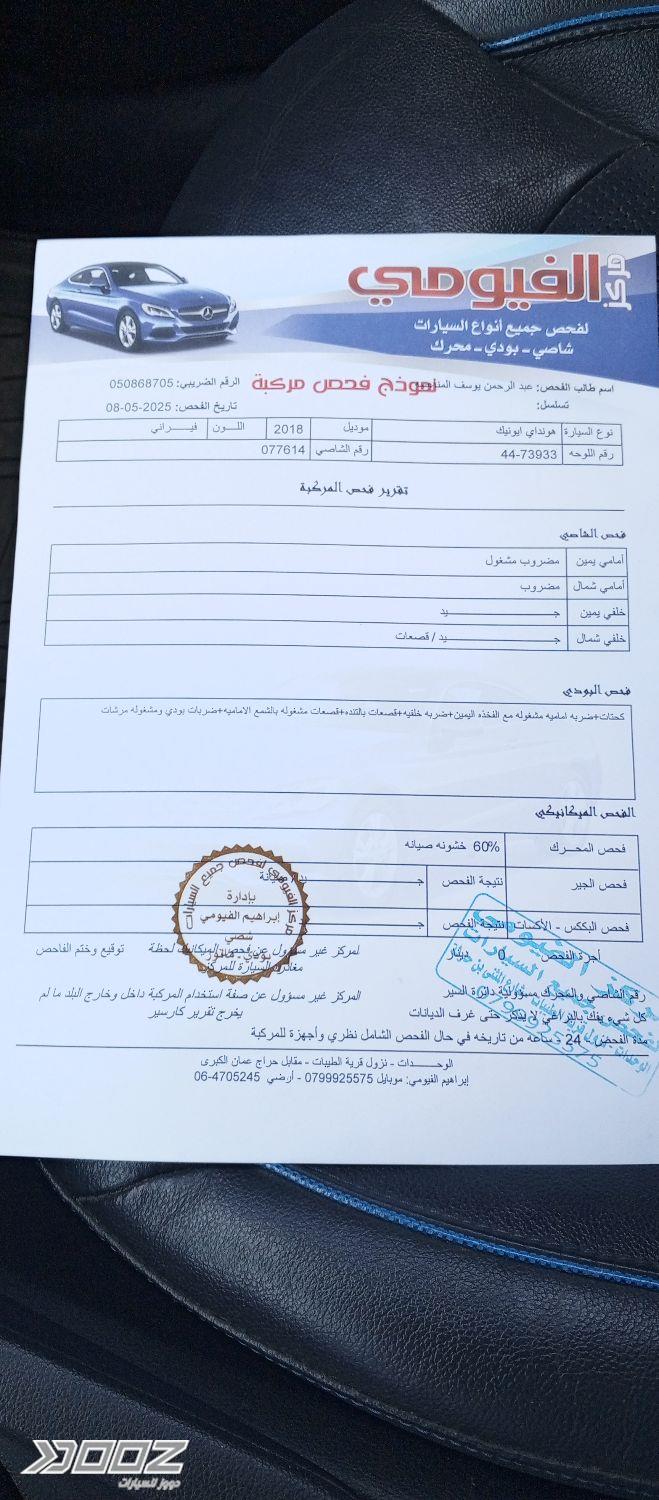 مركز الفيومي
لفحص جميع أنواع السيارات
شاصي - بودي - محرك
اسم طالب الفحص: عبد الرحمن يوسف
نموذج فحص مركبة
الرقم الضريبي: 050868705
تسلسل:
تاريخ الفحص: 08-05-2025
نوع السيارة هونداي ايونيك موديل 2018 اللـــون فيــــراني
رقم اللوحه 44-73933 رقم الشاصي 077614
تقرير فحص المركبة
فحص الشاصي
أمامي يمين مضروب مشغول
أمامي شمال مضروب
خلفي يمين جـــــــــيد
خلفي شمال جـــــــــيد / قصعات
فحص البودي
كحتات+ضربه اماميه مشغوله مع الفخذه اليمين+ضربه خلفيه+قصعات بالتنده+قصعات مشغوله بالشمع الاماميه+ضربات بودي ومشغوله مرشات
الفحص الميكانيكي
فحص المحـــرك 60% خشونه صيانه
فحص الجير نتيجة الفحص
فحص البككس - الأكسات نتيجة الفحص
أجرة الفحص 0 دينار
المركز غير مسؤول عن فحص الميكانيك لحظة
مغادرة السيارة للمركز
توقيع وختم الفاحص
رقم الشاصي والمحرك مسؤولية دائرة السير
المركز غير مسؤول عن صفة استخدام المركبة داخل وخارج البلد ما لم
يخرج تقرير كارسير
كل شيء يفك بالبراغي لا يذكر حتى غرف الديانات
مدة الفحص 24 ساعه من تاريخه في حال الفحص الشامل نظري وأجهزة للمركبة
الوحــــدات - نزول قرية الطيبات - مقابل حراج عمان الكبرى
إبراهيم الفيومي: موبايل 0799925575 - أرضي 06-4705245
مركز الفيومي لفحص جميع السيارات
بإدارة
إبراهيم الفيومي
شصي
بودي - ماتور
DOOZ
دووز للسيارات